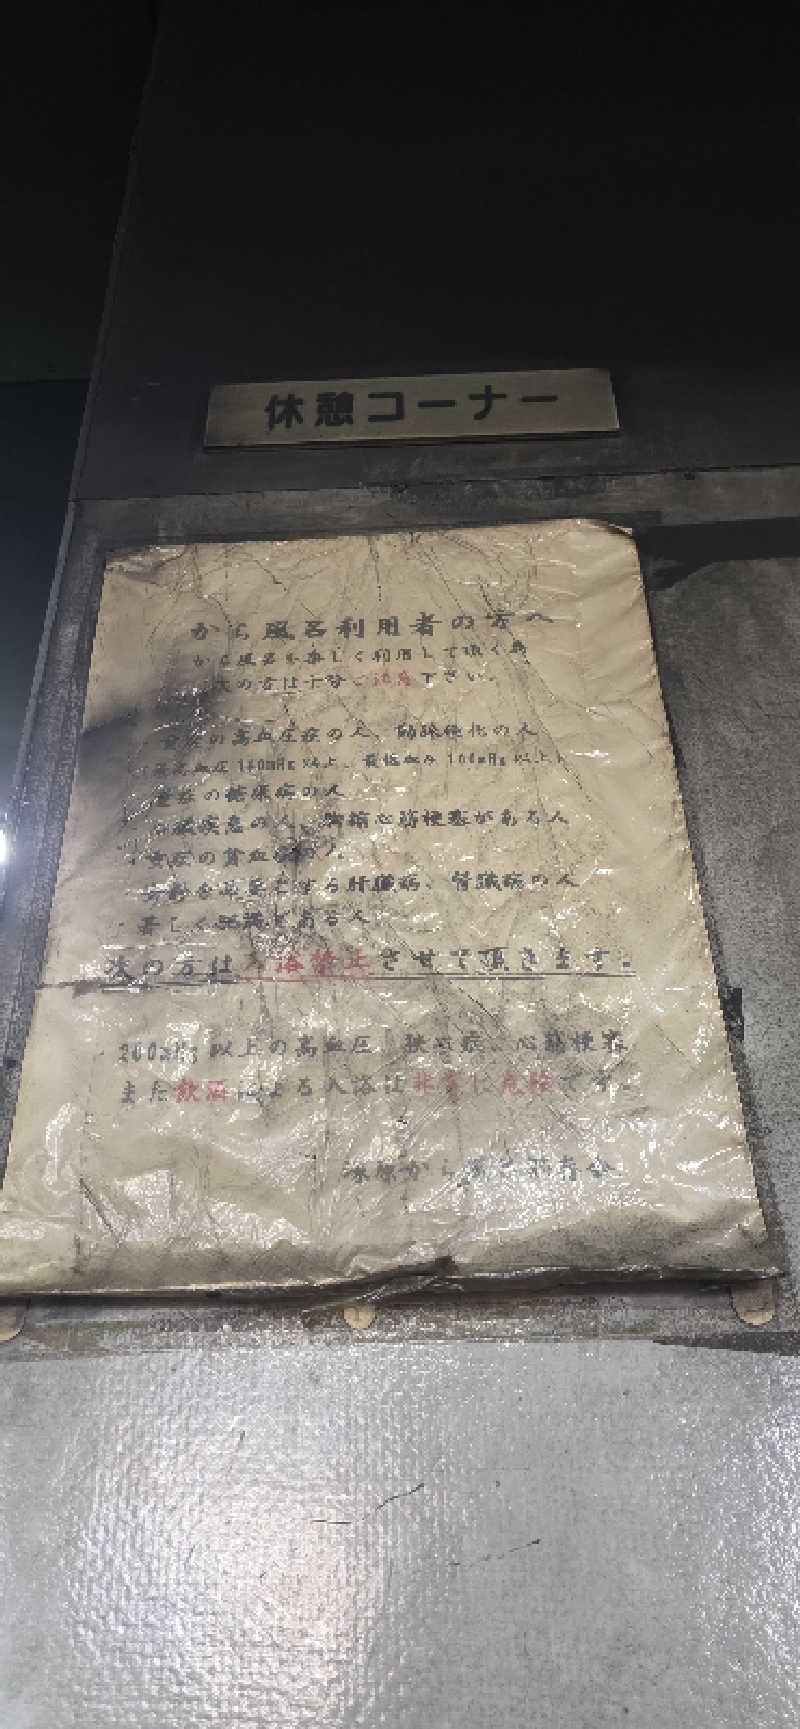 休憩コーナー
から風呂利用者の方へ
から風呂を楽しく利用して頂く為
次の方は十分ご注意下さい。
重症の高血圧症の人、動脈硬化の人
最高血圧 160mHg 以上、最低血圧 100mHg 以上
重症の糖尿病の人
心臓疾患の人、脳梗心筋梗塞がある人
重症の貧血症の人
安静を必要とする肝臓病、腎臓病の人
著しく肥満である人
次の方は入浴禁止させて頂きます。
200mHg 以上の高血圧、狭心症、心筋梗塞
また飲酒による入浴は非常に危険です。
から風呂保存会